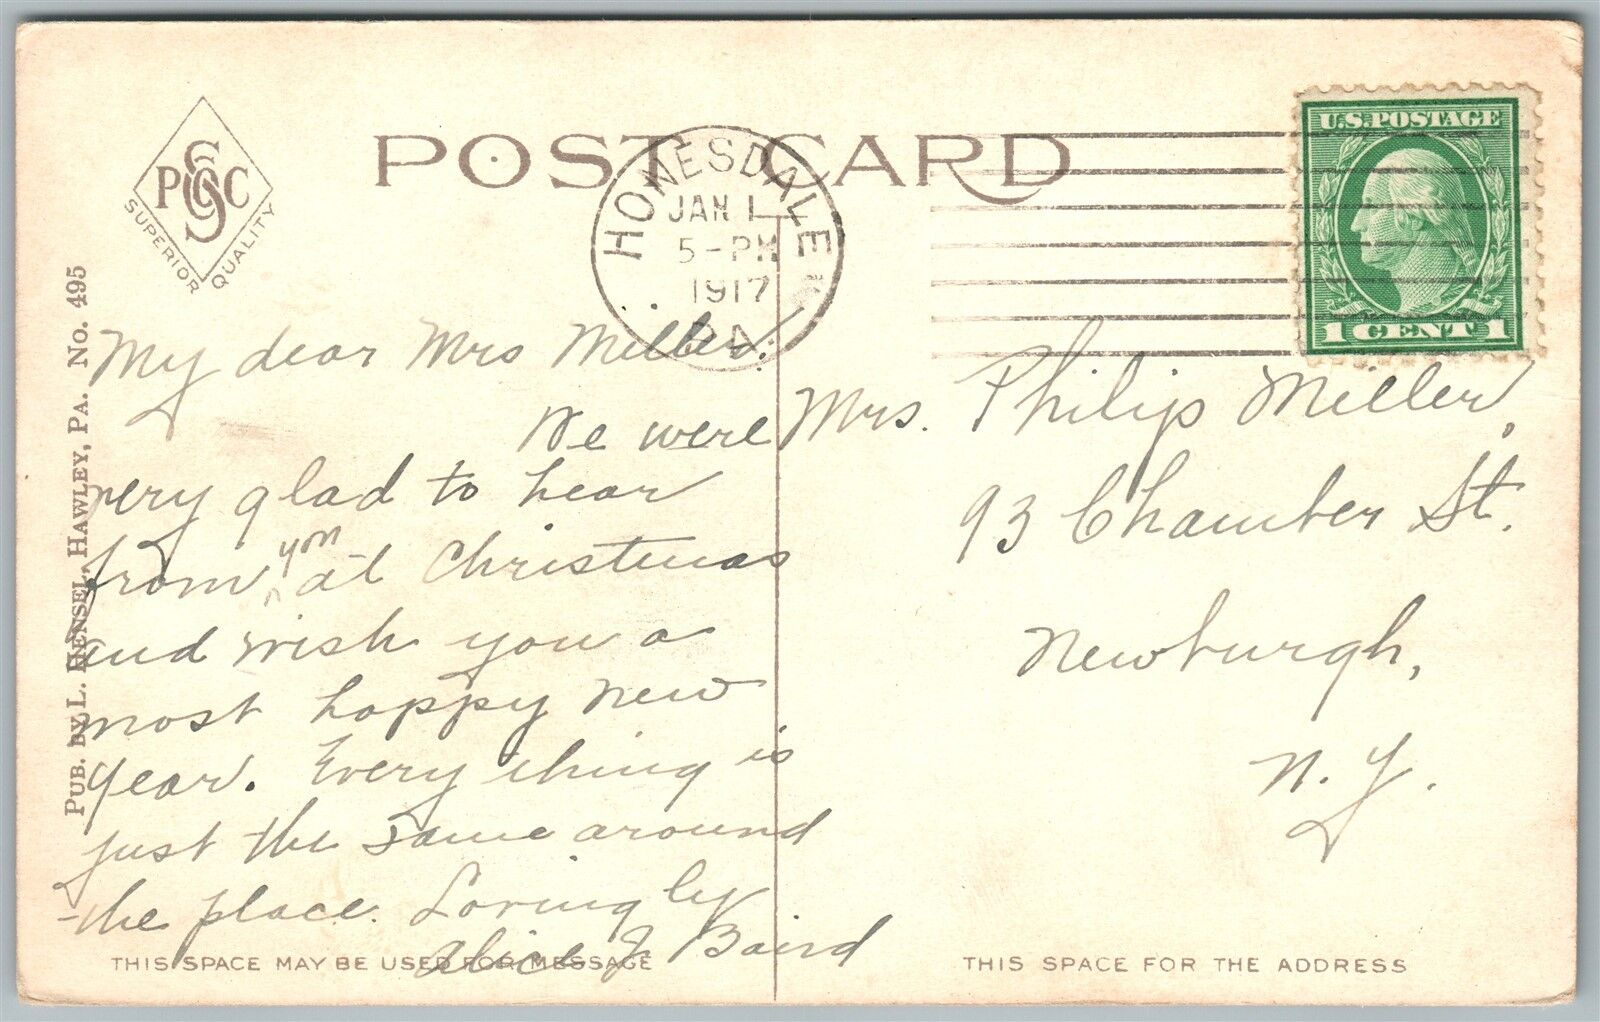 POST CARD
PCSC
SUPERIOR QUALITY
HONESDALE
JAN 1
5-PM
1917
PA.
U.S. POSTAGE
1 CENT 1
PUB. BY L. HENSEL, HAWLEY, PA. No. 495
My dear Mrs Miller.
We were
very glad to hear
from you at Christmas
and wish you a
most happy new
year. Every thing is
just the same around
the place. Lovingly
Alice J Baird
Mrs. Philip Miller,
93 Chamber St.
Newburgh,
N. Y.
THIS SPACE MAY BE USED FOR MESSAGE
THIS SPACE FOR THE ADDRESS